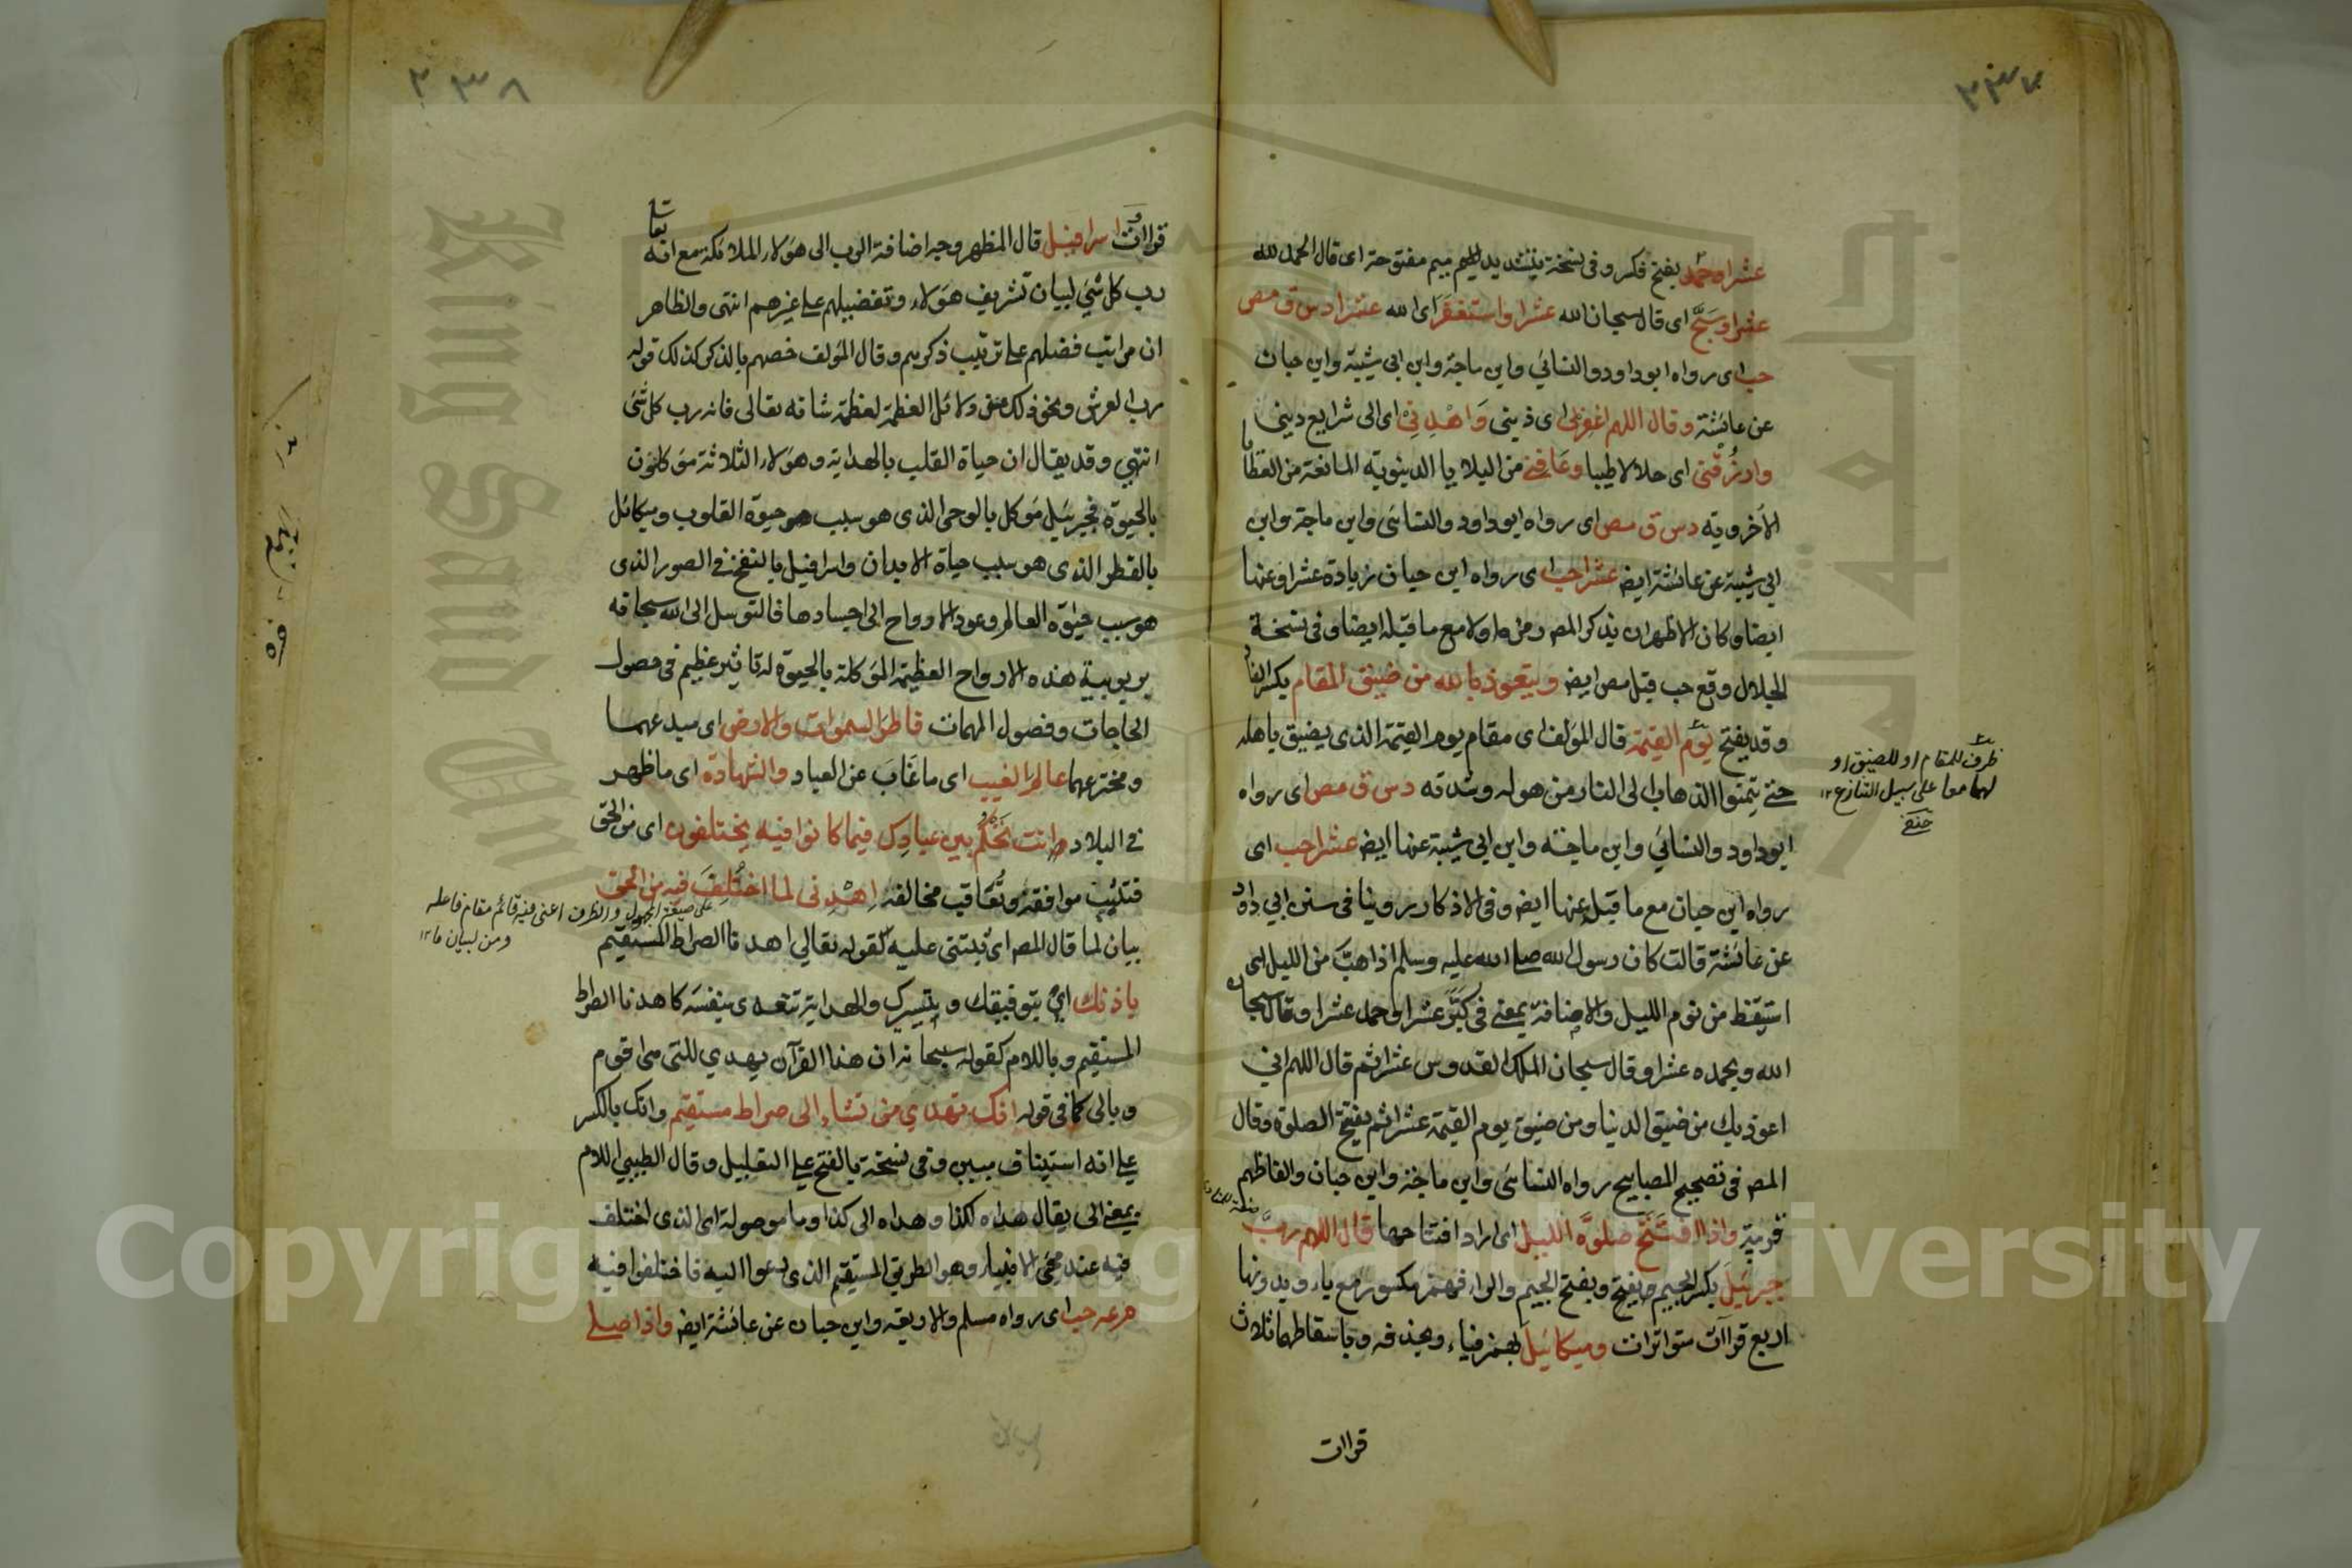 ٢٣٧
عشرا وحمد بفتح فكسر وفي نسخة بتشديد الميم ميم مفتوحة اي قال الحمد لله
عشرا وسبح اي قال سبحان الله عشرا واستغفر اي الله عشرا د س ق مص
حب اي رواه ابو داود والنسائي وابن ماجة وابن ابي شيبة وابن حبان
عن عائشة وقال اللهم اغفر لي اي ذنبي واهدني اي الى شرايع ديني
وارزقني اي حلالا طيبا وعافني من البلايا الدنيوية المانعة من
الاخروية د س ق مص اي رواه ابو داود والنسائي وابن ماجة وابن
ابي شيبة عن عائشة ايض عشرا حب اي رواه ابن حبان بزيادة عشرا وعنها
ايضا وكان الاظهر ان يذكر المص رمزه اولا مع ما قبله ايضا وفي نسخة
الجلال وقع حب قبل مص ايض ويتعوذ بالله من ضيق المقام بكسر الضاد
وقد يفتح يوم القيمة قال المؤلف اي مقام يوم القيمة الذي يضيق باهله
حتى يتمنوا الذهاب الى النار من هوله وشدته د س ق مص اي رواه
ابو داود والنسائي وابن ماجة وابن ابي شيبة عنها ايض عشرا حب اي
رواه ابن حبان مع ما قبله عنها ايض وفي الاذكار روينا في سنن ابي داود
عن عائشة قالت كان رسول الله صلى الله عليه وسلم اذا هب من الليل اي
استيقظ من نوم الليل والاضافة بمعنى في كبر عشرا وحمد عشرا وقال سبحان
الله وبحمده عشرا وقال سبحان الملك القدوس عشرا ثم قال اللهم اني
اعوذ بك من ضيق الدنيا ومن ضيق يوم القيمة عشرا ثم يفتتح الصلوة وقال
المص في تصحيح المصابيح رواه النسائي وابن ماجة وابن حبان والفاظهم
قريبة واذا افتتح صلوة الليل اي اراد افتتاحها قال اللهم رب
جبرئيل بكسر الجيم وبفتح وبفتح الجيم والراء فهمز مكسور مع ياء وبدونها
اربع قراآت متواترات وميكائيل بهمز فياء وبحذفه وباسقاطهما ثلاث
قراات
ظرف للمقام او للضيق او
لهما معا على سبيل التنازع ١٢
حنفي
٢٣٨
قراات واسرافيل قال المظهر وجه اضافة الرب الى هؤلاء الملائكة مع انه تعالى
رب كل شيء لبيان تشريف هؤلاء وتفضيلهم على غيرهم انتهى والظاهر
ان مراتب فضلهم على ترتيب ذكرهم وقال المؤلف خصهم بالذكر كذلك قوله
رب العرش ونحو ذلك من دلائل العظمة لعظمة شانه تعالى فانه رب كل شئ
انتهى وقد يقال ان حياة القلب بالهداية وهؤلاء الثلاثة موكلون
بالحيوة فجبرئيل موكل بالوحي الذي هو سبب حيوة القلوب وميكائل
بالقطر الذي هو سبب حياة الابدان واسرافيل بالنفخ في الصور الذي
هو سبب حيوة العالم وعود الارواح الى اجسادها فالتوسل الى الله سبحانه
بربوبية هذه الارواح العظيمة الموكلة بالحيوة له تاثير عظيم في حصول
الحاجات وفصول المهمات فاطر السموات والارض اي مبدعهما
ومخترعهما عالم الغيب اي ما غاب عن العباد والشهادة اي ما ظهر
في البلاد وانت تحكم بين عبادك فيما كانوا فيه يختلفون اي من الحق
فتثيب موافقه وتعاقب مخالفه اهدني لما اختلف فيه من الحق
بيان لما قال المص اي ثبتني عليه كقوله تعالى اهدنا الصراط المستقيم
باذنك اي بتوفيقك وتيسيرك والهداية تتعدى بنفسه كاهدنا الصراط
المستقيم وباللام كقوله سبحانه ان هذا القرآن يهدي للتي هي اقوم
وبالى كما في قوله انك تهدي من تشاء الى صراط مستقيم وانك بالكسر
على انه استيناف مبين وفي نسخة بالفتح على التعليل وقال الطيبي اللام
بمعنى الى يقال هداه لكذا وهداه الى كذا وما موصولة اي الذي اختلف
فيه عند مجئ الانبياء وهو الطريق المستقيم الذي دعوا اليه فاختلفوا فيه
م عه حب اي رواه مسلم والاربعة وابن حبان عن عائشة ايض واذا صلى
على صيغة المجهول والظرف اعني فيه قائم مقام فاعله
ومن لبيان ما ١٢
King Saud University
جامعة الملك سعود
1957
Copyright © King Saud University